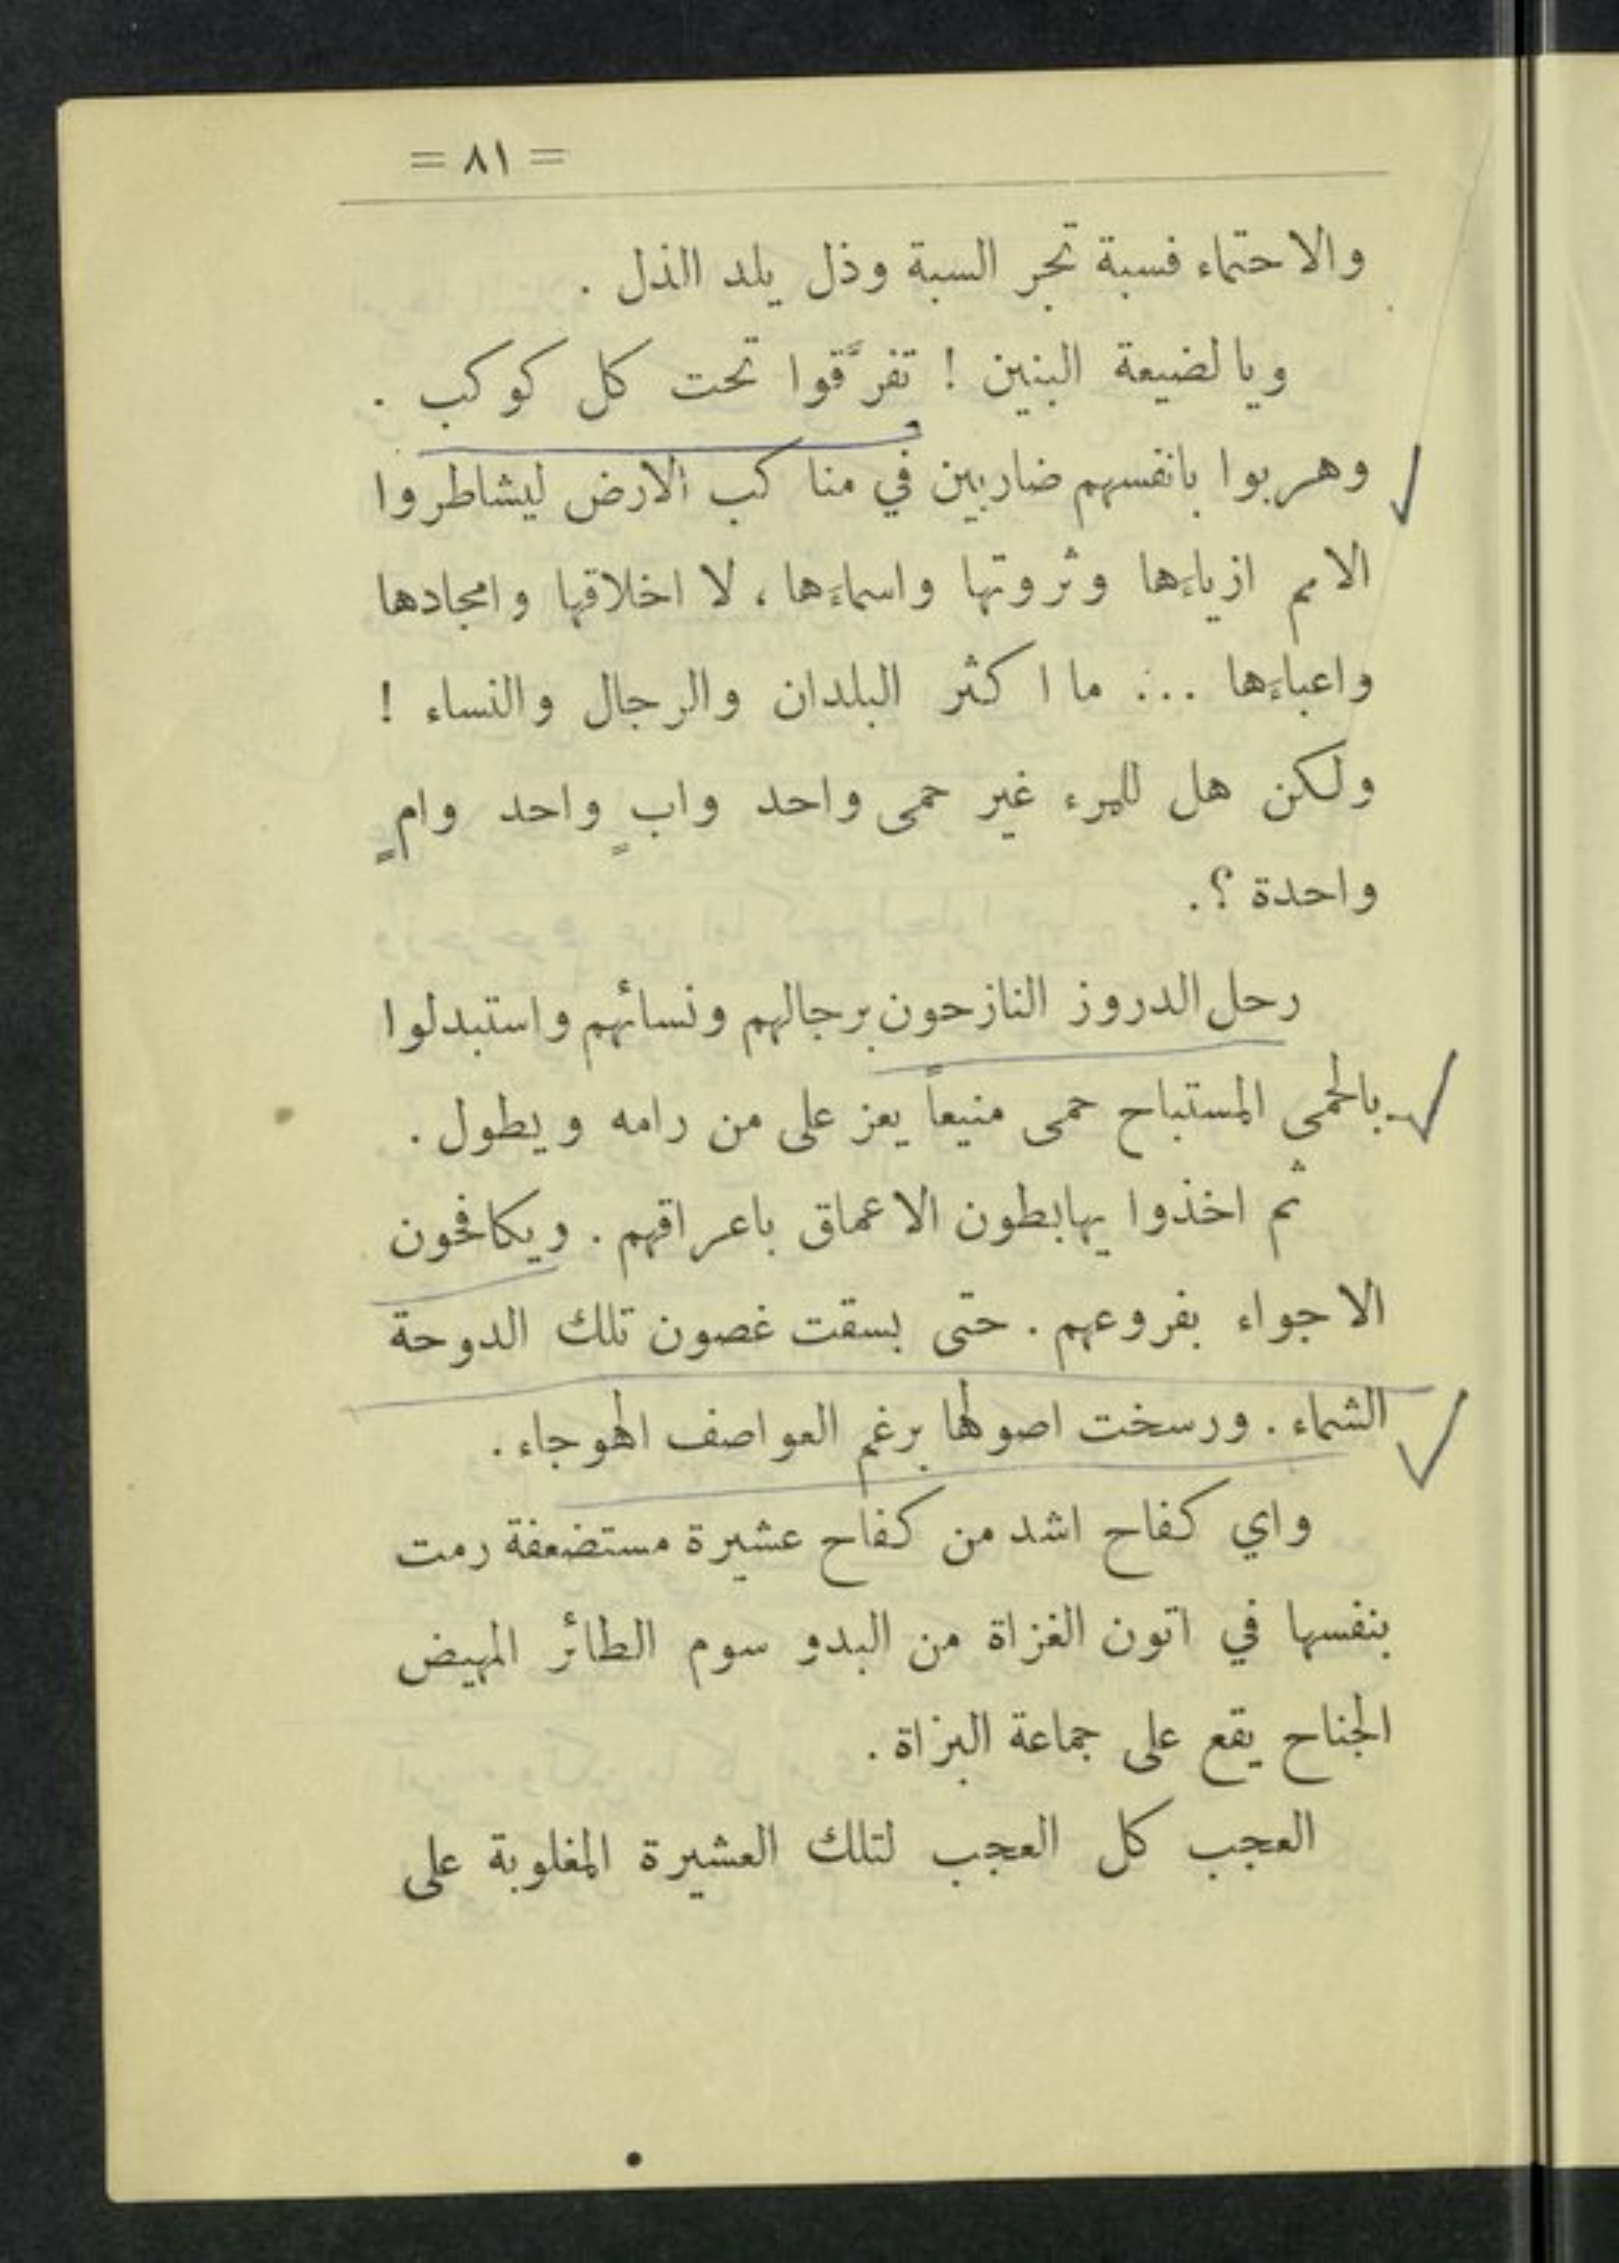 = ٨١ =
والاحتماء فسبة تجر السبة وذل يلد الذل .
ويا لضيعة البنين ! تفرَّقوا تحت كل كوكب .
وهربوا بانفسهم ضاربين في مناكب الارض ليشاطروا
الامم ازياءَها وثروتها واسماءَها ، لا اخلاقها وامجادها
واعباءَها ... ما اكثر البلدان والرجال والنساء !
ولكن هل للمرء غير حمى واحد وابٍ واحد وامٍ
واحدة ؟ .
رحل الدروز النازحون برجالهم ونسائهم واستبدلوا
بالحمى المستباح حمى منيعاً يعز على من رامه ويطول .
ثم اخذوا يهابطون الاعماق باعراقهم . ويكافحون
الاجواء بفروعهم . حتى بسقت غصون تلك الدوحة
الشماء . ورسخت اصولها برغم العواصف الهوجاء .
واي كفاح اشد من كفاح عشيرة مستضعفة رمت
بنفسها في اتون الغزاة من البدو سوم الطائر المهيض
الجناح يقع على جماعة البزاة .
العجب كل العجب لتلك العشيرة المغلوبة على